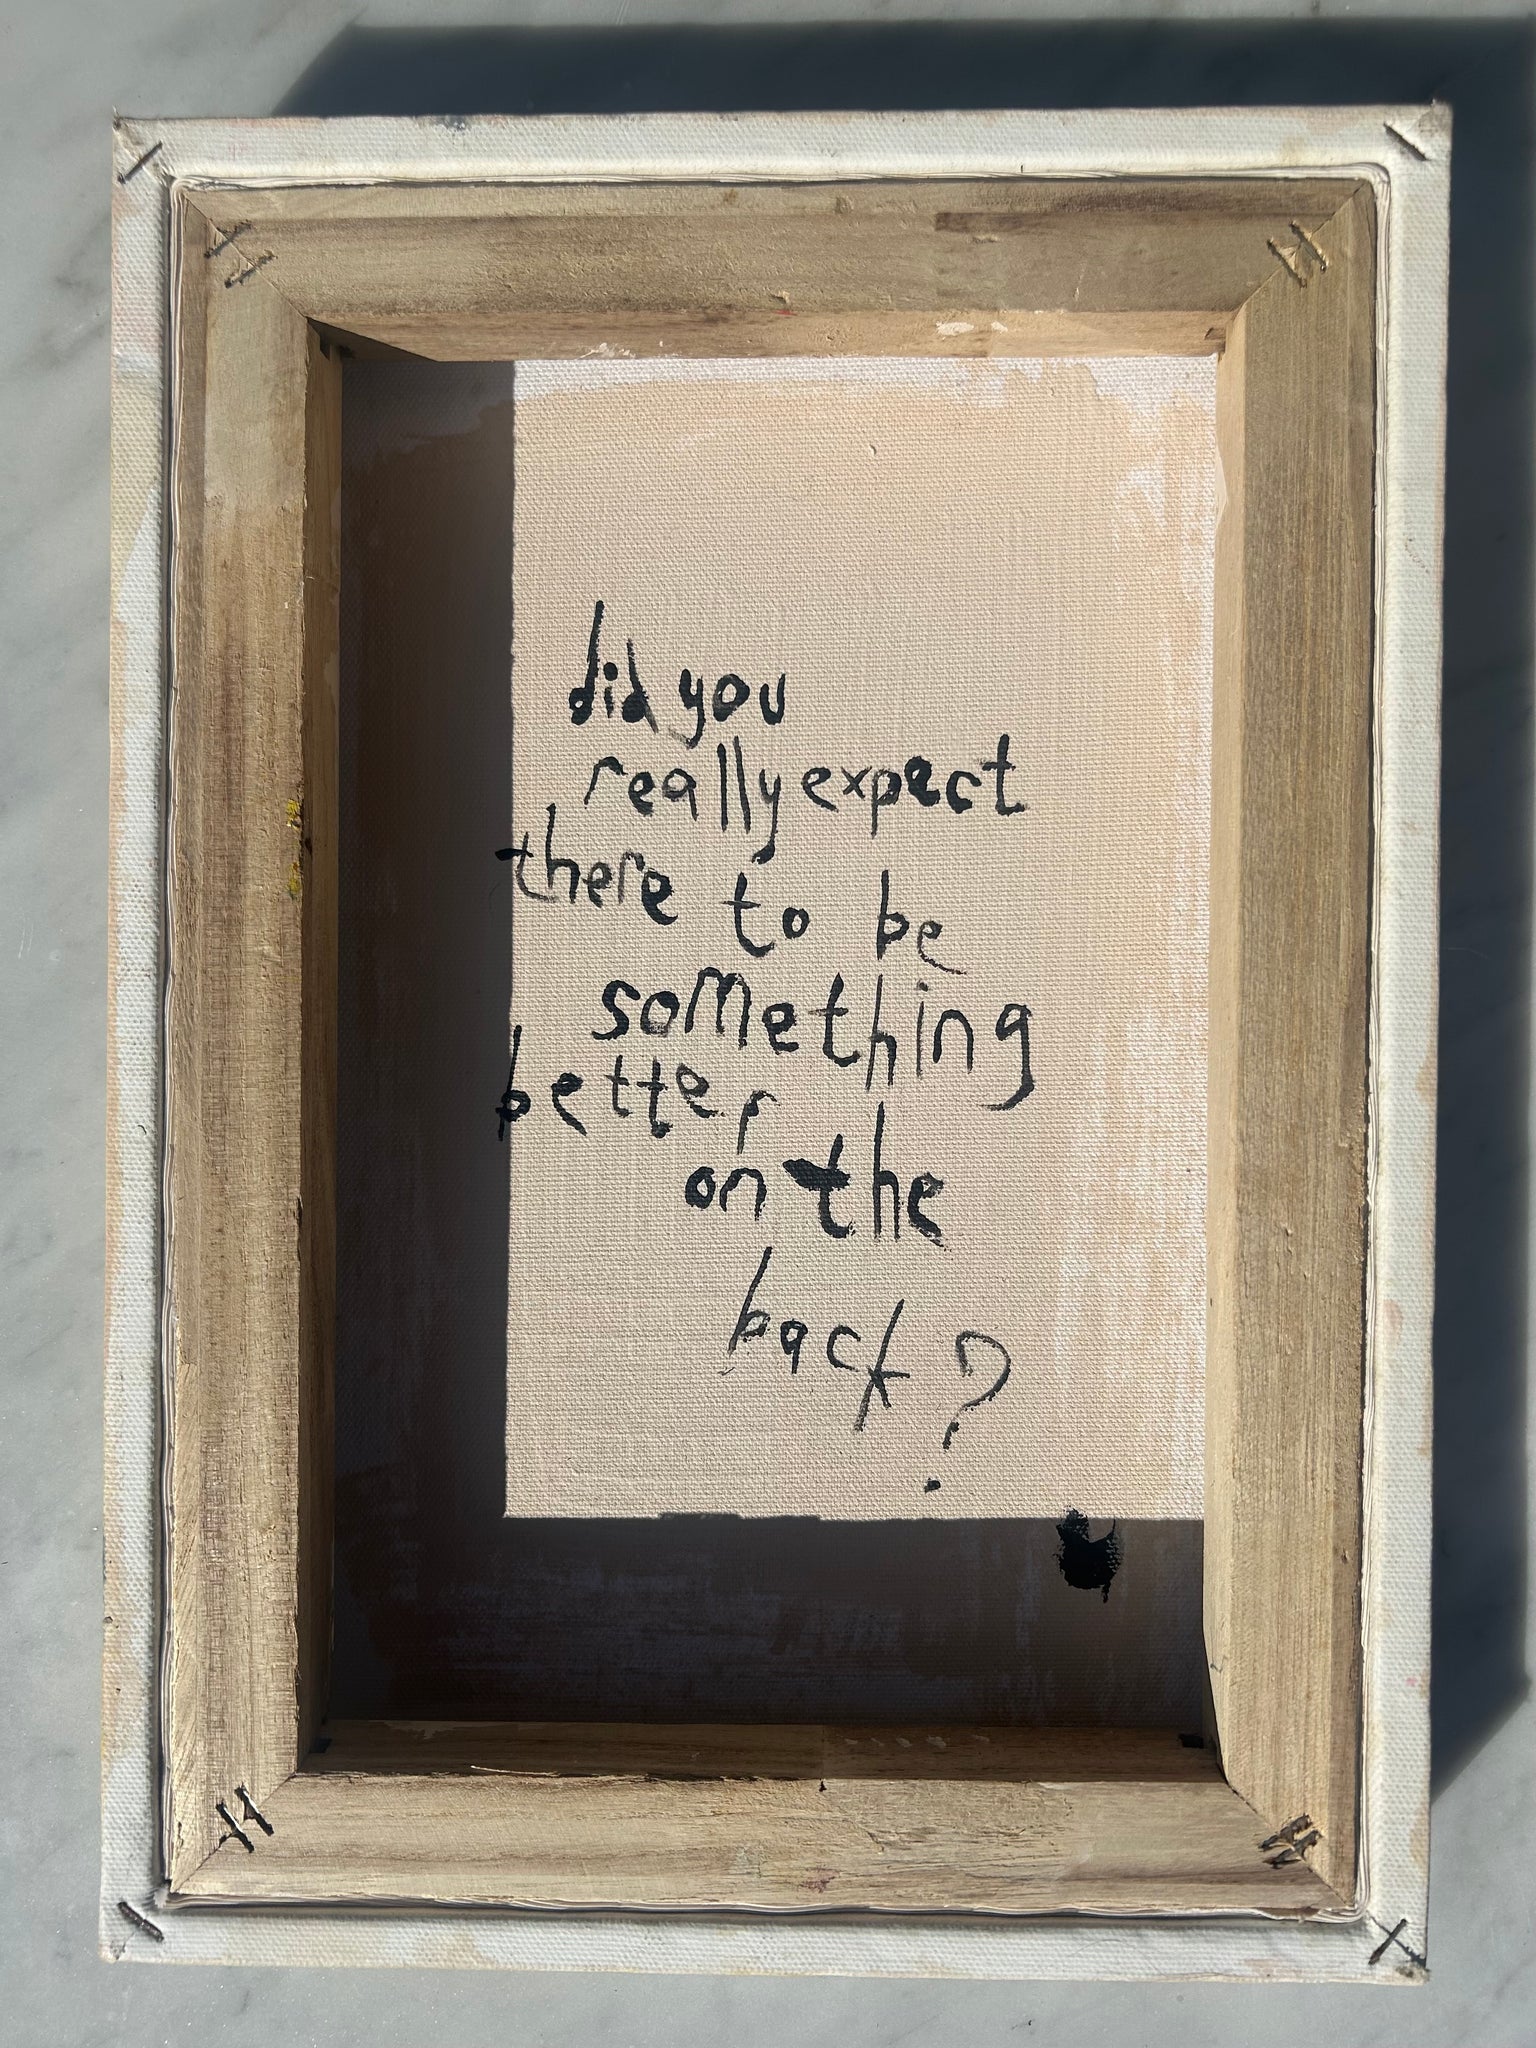 did you
really expect
there to be
something
better
on the
back?